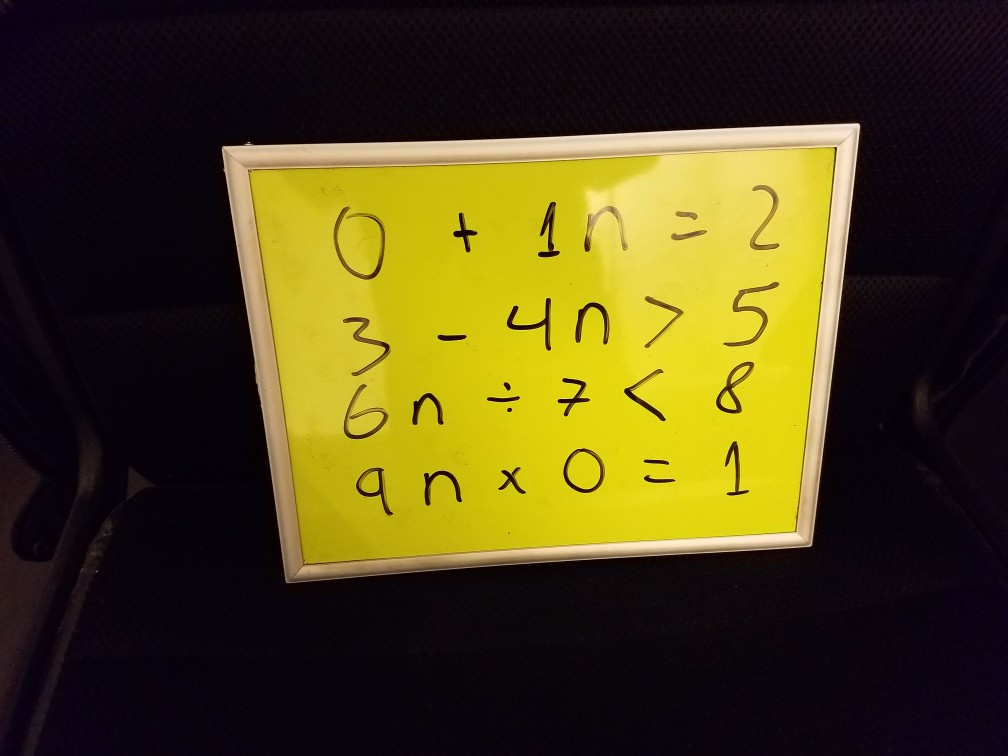 0 + 1n = 2
3 - 4n > 5
6n ÷ 7 < 8
9n x 0 = 1